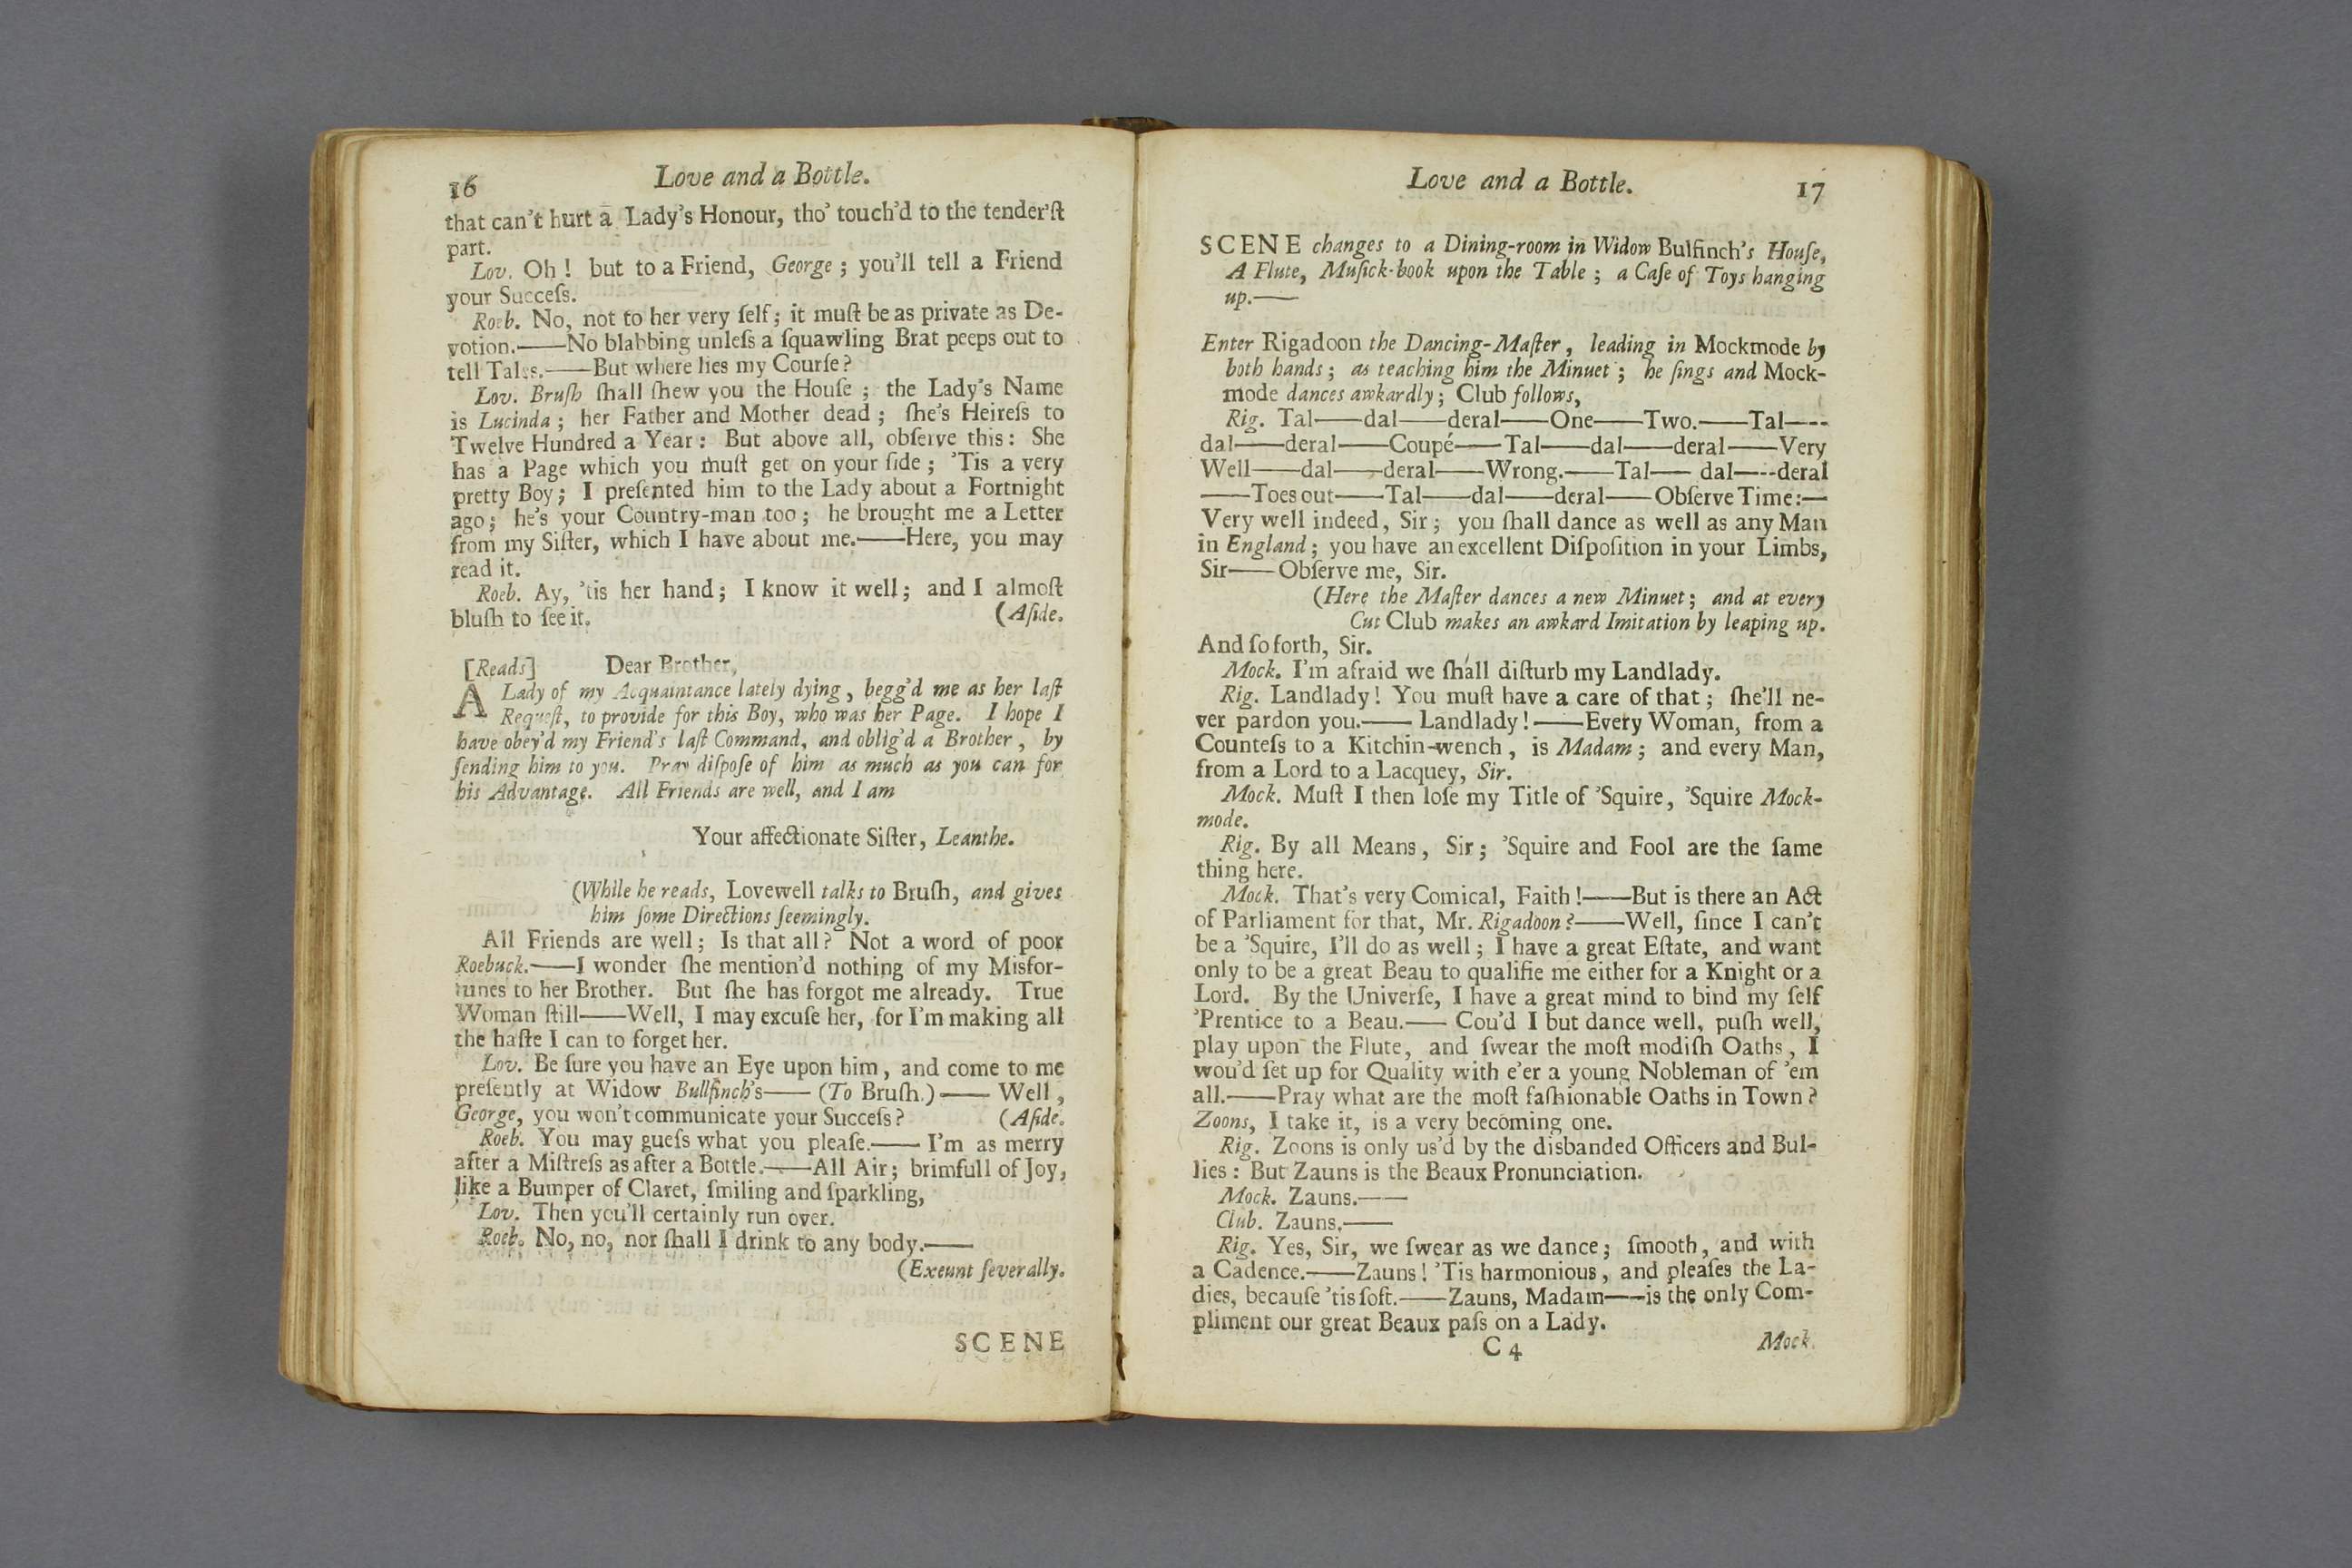 16
Love and a Bottle.
that can't hurt a Lady's Honour, tho' touch'd to the tender'ſt
part.
Lov. Oh ! but to a Friend, George ; you'll tell a Friend
your Succeſs.
Roeb. No, not to her very ſelf ; it muſt be as private as De-
votion.——No blabbing unleſs a ſquawling Brat peeps out to
tell Tales.——But where lies my Courſe?
Lov. Bruſh ſhall ſhew you the Houſe ; the Lady's Name
is Lucinda ; her Father and Mother dead ; ſhe's Heireſs to
Twelve Hundred a Year : But above all, obſerve this : She
has a Page which you muſt get on your ſide ; 'Tis a very
pretty Boy ; I preſented him to the Lady about a Fortnight
ago ; he's your Country-man too ; he brought me a Letter
from my Siſter, which I have about me.——Here, you may
read it.
Roeb. Ay, 'tis her hand ; I know it well ; and I almoſt
bluſh to ſee it. (Aſide.
[Reads] Dear Brother,
A Lady of my Acquaintance lately dying, begg'd me as her laſt
Requeſt, to provide for this Boy, who was her Page. I hope I
have obey'd my Friend's laſt Command, and oblig'd a Brother, by
ſending him to you. Pray diſpoſe of him as much as you can for
his Advantage. All Friends are well, and I am
Your affectionate Siſter, Leanthe.
(While he reads, Lovewell talks to Bruſh, and gives
him ſome Directions ſeemingly.
All Friends are well ; Is that all? Not a word of poor
Roebuck.——I wonder ſhe mention'd nothing of my Misfor-
tunes to her Brother. But ſhe has forgot me already. True
Woman ſtill——Well, I may excuſe her, for I'm making all
the haſte I can to forget her.
Lov. Be ſure you have an Eye upon him, and come to me
preſently at Widow Bullfinch's—— (To Bruſh.)—— Well,
George, you won't communicate your Succeſs? (Aſide.
Roeb. You may gueſs what you pleaſe.—— I'm as merry
after a Miſtreſs as after a Bottle.——All Air ; brimfull of Joy,
like a Bumper of Claret, ſmiling and ſparkling,
Lov. Then you'll certainly run over.
Roeb. No, no, nor ſhall I drink to any body.——
(Exeunt ſeverally.
SCENE
Love and a Bottle.
17
SCENE changes to a Dining-room in Widow Bulfinch's Houſe,
A Flute, Muſick-book upon the Table ; a Caſe of Toys hanging
up.——
Enter Rigadoon the Dancing-Maſter, leading in Mockmode by
both hands ; as teaching him the Minuet ; he ſings and Mock-
mode dances awkardly ; Club follows,
Rig. Tal——dal——deral——One——Two.——Tal----
dal——deral——Coupé——Tal——dal——deral——Very
Well——dal——deral——Wrong.——Tal—— dal----deral
——Toes out——Tal——dal——deral——Obſerve Time:—
Very well indeed, Sir ; you ſhall dance as well as any Man
in England ; you have an excellent Diſpoſition in your Limbs,
Sir——Obſerve me, Sir.
(Here the Maſter dances a new Minuet ; and at every
Cut Club makes an awkard Imitation by leaping up.
And ſo forth, Sir.
Mock. I'm afraid we ſhall diſturb my Landlady.
Rig. Landlady ! You muſt have a care of that ; ſhe'll ne-
ver pardon you.—— Landlady !——Every Woman, from a
Counteſs to a Kitchin-wench, is Madam ; and every Man,
from a Lord to a Lacquey, Sir.
Mock. Muſt I then loſe my Title of 'Squire, 'Squire Mock-
mode.
Rig. By all Means, Sir ; 'Squire and Fool are the ſame
thing here.
Mock. That's very Comical, Faith !——But is there an Act
of Parliament for that, Mr. Rigadoon?——Well, ſince I can't
be a 'Squire, I'll do as well ; I have a great Eſtate, and want
only to be a great Beau to qualifie me either for a Knight or a
Lord. By the Univerſe, I have a great mind to bind my ſelf
'Prentice to a Beau.—— Cou'd I but dance well, puſh well,
play upon the Flute, and ſwear the moſt modiſh Oaths, I
wou'd ſet up for Quality with e'er a young Nobleman of 'em
all.——Pray what are the moſt faſhionable Oaths in Town?
Zoons, I take it, is a very becoming one.
Rig. Zoons is only us'd by the disbanded Officers and Bul-
lies : But Zauns is the Beaux Pronunciation.
Mock. Zauns.——
Club. Zauns.——
Rig. Yes, Sir, we ſwear as we dance ; ſmooth, and with
a Cadence.——Zauns ! 'Tis harmonious, and pleaſes the La-
dies, becauſe 'tis ſoft.——Zauns, Madam——is the only Com-
pliment our great Beaux paſs on a Lady.
C 4 Mock.